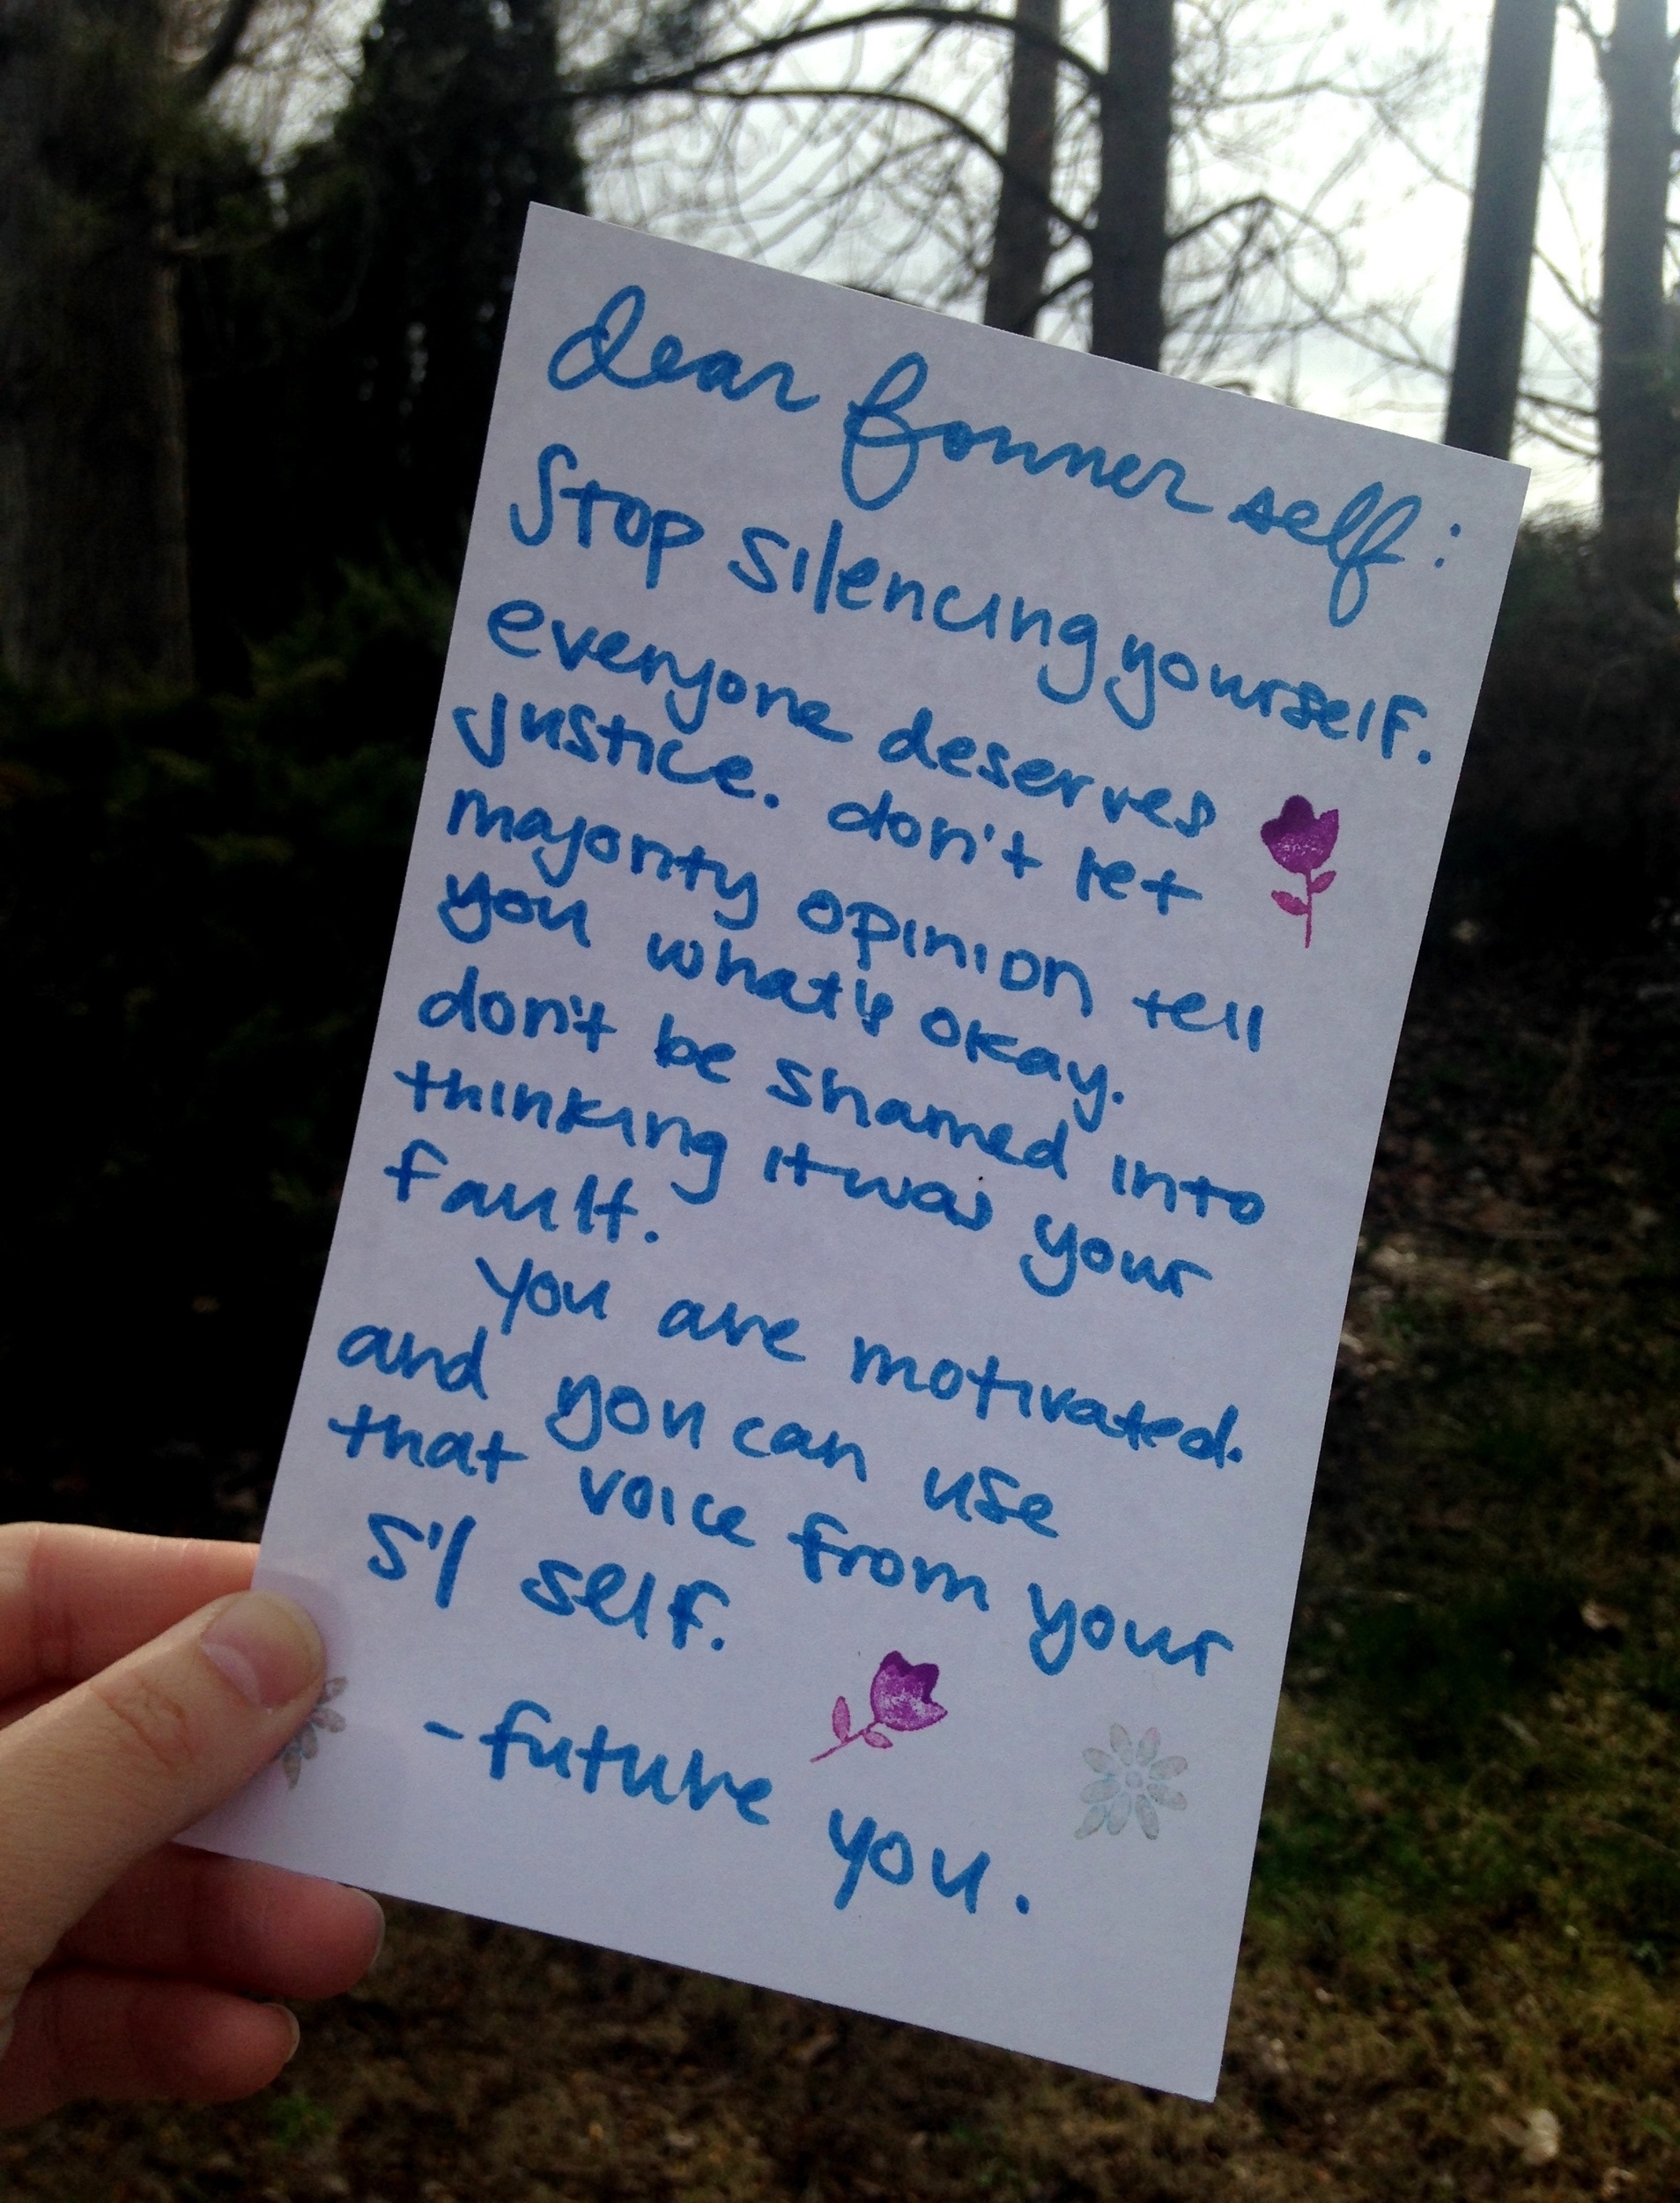 dear former self:
Stop silencing yourself.
everyone deserves
justice. don't let
majority opinion tell
you what's okay.
don't be shamed into
thinking it was your
fault.
you are motivated.
and you can use
that voice from your
5'1 self.
- future you.